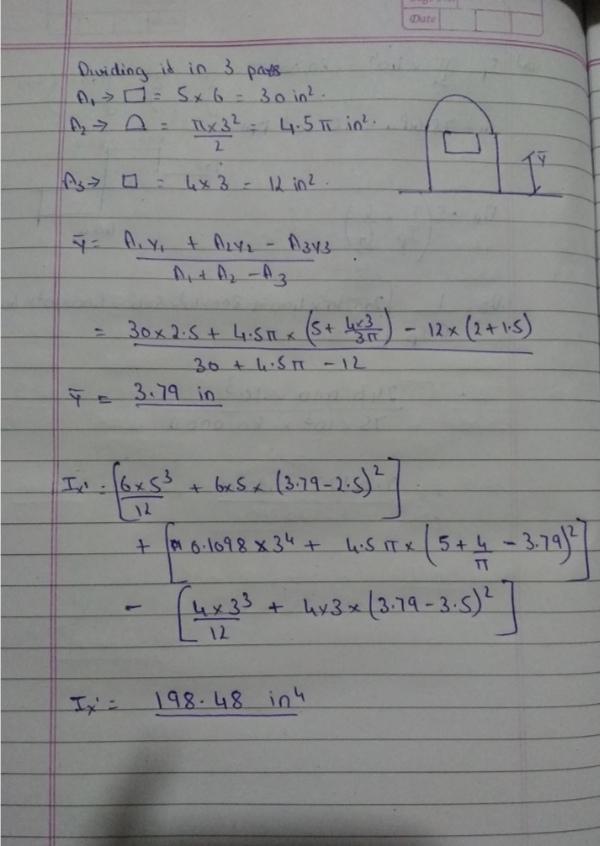 Date
Dividing it in 3 parts
A₁ → ▭ = 5 × 6 = 30 in².
A₂ → ⌓ = π×3²/2 = 4.5 π in².
A₃ → □ = 4×3 = 12 in².
ȳ
ȳ = (A₁Y₁ + A₂Y₂ − A₃Y₃) / (A₁ + A₂ − A₃).
= (30×2.5 + 4.5π × (5 + 4×3/3π) − 12×(2+1.5)) / (30 + 4.5π − 12)
ȳ = 3.79 in
Iₓ' = [6×5³/12 + 6×5×(3.79−2.5)²]
+ [0.1098×3⁴ + 4.5π×(5 + 4/π − 3.79)²]
− [4×3³/12 + 4×3×(3.79−3.5)²]
Iₓ' = 198.48 in⁴